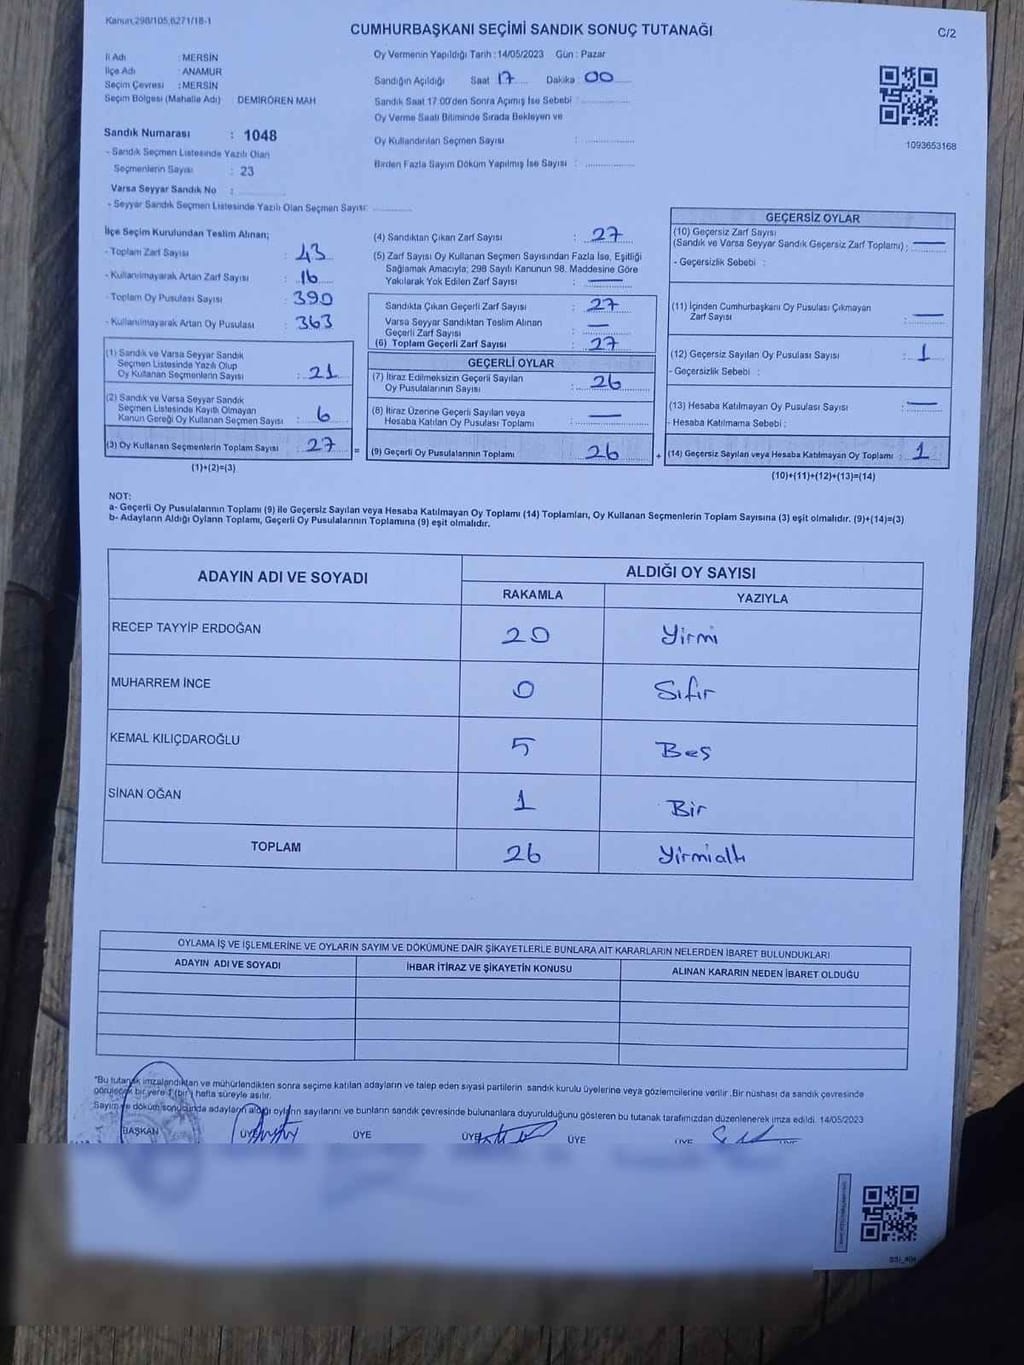 Kanun,298/105,6271/18-1
CUMHURBAŞKANI SEÇİMİ SANDIK SONUÇ TUTANAĞI
C/2
İl Adı : MERSİN
İlçe Adı : ANAMUR
Seçim Çevresi : MERSİN
Seçim Bölgesi (Mahalle Adı) DEMİRÖREN MAH
Oy Vermenin Yapıldığı Tarih : 14/05/2023 Gün : Pazar
Sandığın Açıldığı Saat 17 Dakika : 00
Sandık Saat 17:00'den Sonra Açımış İse Sebebi :
Oy Verme Saati Bitiminde Sırada Bekleyen ve
Oy Kullandırılan Seçmen Sayısı :
Birden Fazla Sayım Döküm Yapılmış İse Sayısı :
1093653168
Sandık Numarası : 1048
- Sandık Seçmen Listesinde Yazılı Olan
Seçmenlerin Sayısı : 23
Varsa Seyyar Sandık No :
- Seyyar Sandık Seçmen Listesinde Yazılı Olan Seçmen Sayısı:
İlçe Seçim Kurulundan Teslim Alınan;
- Toplam Zarf Sayısı : 43
- Kullanılmayarak Artan Zarf Sayısı : 16
- Toplam Oy Pusulası Sayısı : 390
- Kullanılmayarak Artan Oy Pusulası : 363
(1) Sandık ve Varsa Seyyar Sandık
Seçmen Listesinde Yazılı Olup
Oy Kullanan Seçmenlerin Sayısı : 21
(2) Sandık ve Varsa Seyyar Sandık
Seçmen Listesinde Kayıtlı Olmayan
Kanun Gereği Oy Kullanan Seçmen Sayısı : 6
(3) Oy Kullanan Seçmenlerin Toplam Sayısı : 27 =
(1)+(2)=(3)
(4) Sandıktan Çıkan Zarf Sayısı : 27
(5) Zarf Sayısı Oy Kullanan Seçmen Sayısından Fazla İse, Eşitliği
Sağlamak Amacıyla; 298 Sayılı Kanunun 98. Maddesine Göre
Yakılarak Yok Edilen Zarf Sayısı : —
Sandıkta Çıkan Geçerli Zarf Sayısı : 27
Varsa Seyyar Sandıktan Teslim Alınan
Geçerli Zarf Sayısı : —
(6) Toplam Geçerli Zarf Sayısı : 27
GEÇERLİ OYLAR
(7) İtiraz Edilmeksizin Geçerli Sayılan
Oy Pusulalarının Sayısı : 26
(8) İtiraz Üzerine Geçerli Sayılan veya
Hesaba Katılan Oy Pusulası Toplamı : —
(9) Geçerli Oy Pusulalarının Toplamı 26 +
GEÇERSİZ OYLAR
(10) Geçersiz Zarf Sayısı
(Sandık ve Varsa Seyyar Sandık Geçersiz Zarf Toplamı) : —
- Geçersizlik Sebebi :
(11) İçinden Cumhurbaşkanı Oy Pusulası Çıkmayan
Zarf Sayısı : —
(12) Geçersiz Sayılan Oy Pusulası Sayısı : 1
- Geçersizlik Sebebi :
(13) Hesaba Katılmayan Oy Pusulası Sayısı : —
- Hesaba Katılmama Sebebi :
(14) Geçersiz Sayılan veya Hesaba Katılmayan Oy Toplamı : 1
(10)+(11)+(12)+(13)=(14)
NOT:
a- Geçerli Oy Pusulalarının Toplamı (9) ile Geçersiz Sayılan veya Hesaba Katılmayan Oy Toplamı (14) Toplamları, Oy Kullanan Seçmenlerin Toplam Sayısına (3) eşit olmalıdır. (9)+(14)=(3)
b- Adayların Aldığı Oyların Toplamı, Geçerli Oy Pusulalarının Toplamına (9) eşit olmalıdır.
ADAYIN ADI VE SOYADI
ALDIĞI OY SAYISI
RAKAMLA YAZIYLA
RECEP TAYYİP ERDOĞAN 20 Yirmi
MUHARREM İNCE 0 Sıfır
KEMAL KILIÇDAROĞLU 5 Beş
SİNAN OĞAN 1 Bir
TOPLAM 26 Yirmialtı
OYLAMA İŞ VE İŞLEMLERİNE VE OYLARIN SAYIM VE DÖKÜMÜNE DAİR ŞİKAYETLERLE BUNLARA AİT KARARLARIN NELERDEN İBARET BULUNDUKLARI
ADAYIN ADI VE SOYADI İHBAR İTİRAZ VE ŞİKAYETİN KONUSU ALINAN KARARIN NEDEN İBARET OLDUĞU
"Bu tutanak imzalandıktan ve mühürlendikten sonra seçime katılan adayların ve talep eden siyasi partilerin sandık kurulu üyelerine veya gözlemcilerine verilir. Bir nüshası da sandık çevresinde
görülecek bir yere 1 (bir) hafta süreyle asılır.
Sayım ve döküm sonucunda adayların aldığı oyların sayılarını ve bunların sandık çevresinde bulunanlara duyurulduğunu gösteren bu tutanak tarafımızdan düzenlenerek imza edildi. 14/05/2023
BAŞKAN ÜYE ÜYE ÜYE ÜYE ÜYE ÜYE